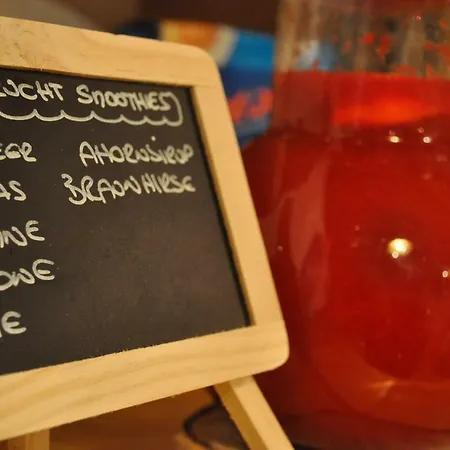 UCHT SMOOTHIES
EER AHORNSIRUP
AS BRAUNHIRSE
NE
OWE
E